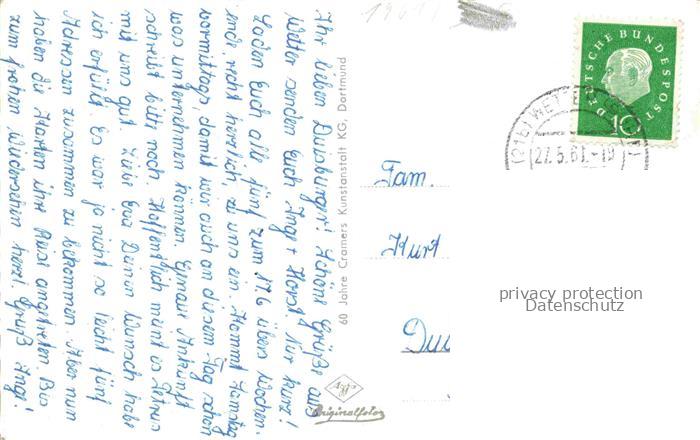 Ihr lieben Duisburger! Schöne Grüße aus
Wetter senden Euch Inge + Horst. Nur kurz!
Laden Euch alle fünf zum 17.6 übers Wochen-
ende, recht herzlich, zu uns ein. Kommt Samstag
vormittags, damit wir auch an diesem Tag schon
was unternehmen können. Genaue Ankunft
schreibt bitte noch. Hoffentlich meint es Petrus
mit uns gut. Liebe Eva Deinen Wunsch habe
ich erfüllt. Es war ja nicht so leicht fünf
Adressen zusammen zu bekommen. Aber nun
haben die Karten ihre Reise angetreten. Bis
zum frohen Wiedersehen herzl. Grüße Inge!
60 Jahre Cramers Kunstanstalt KG, Dortmund
Originalfoto
1961
DEUTSCHE BUNDESPOST
10
WETTER
27.5.61.-19
Fam.
Kurt
Dui
privacy protection
Datenschutz